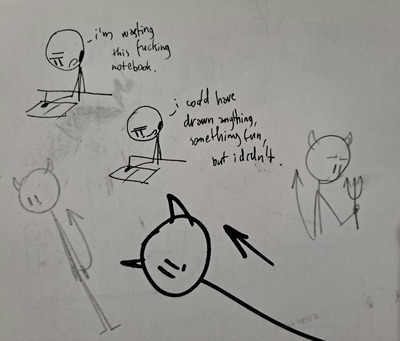 i'm wasting
this fucking
notebook.
i could have
drawn anything,
something fun,
but i didn't.